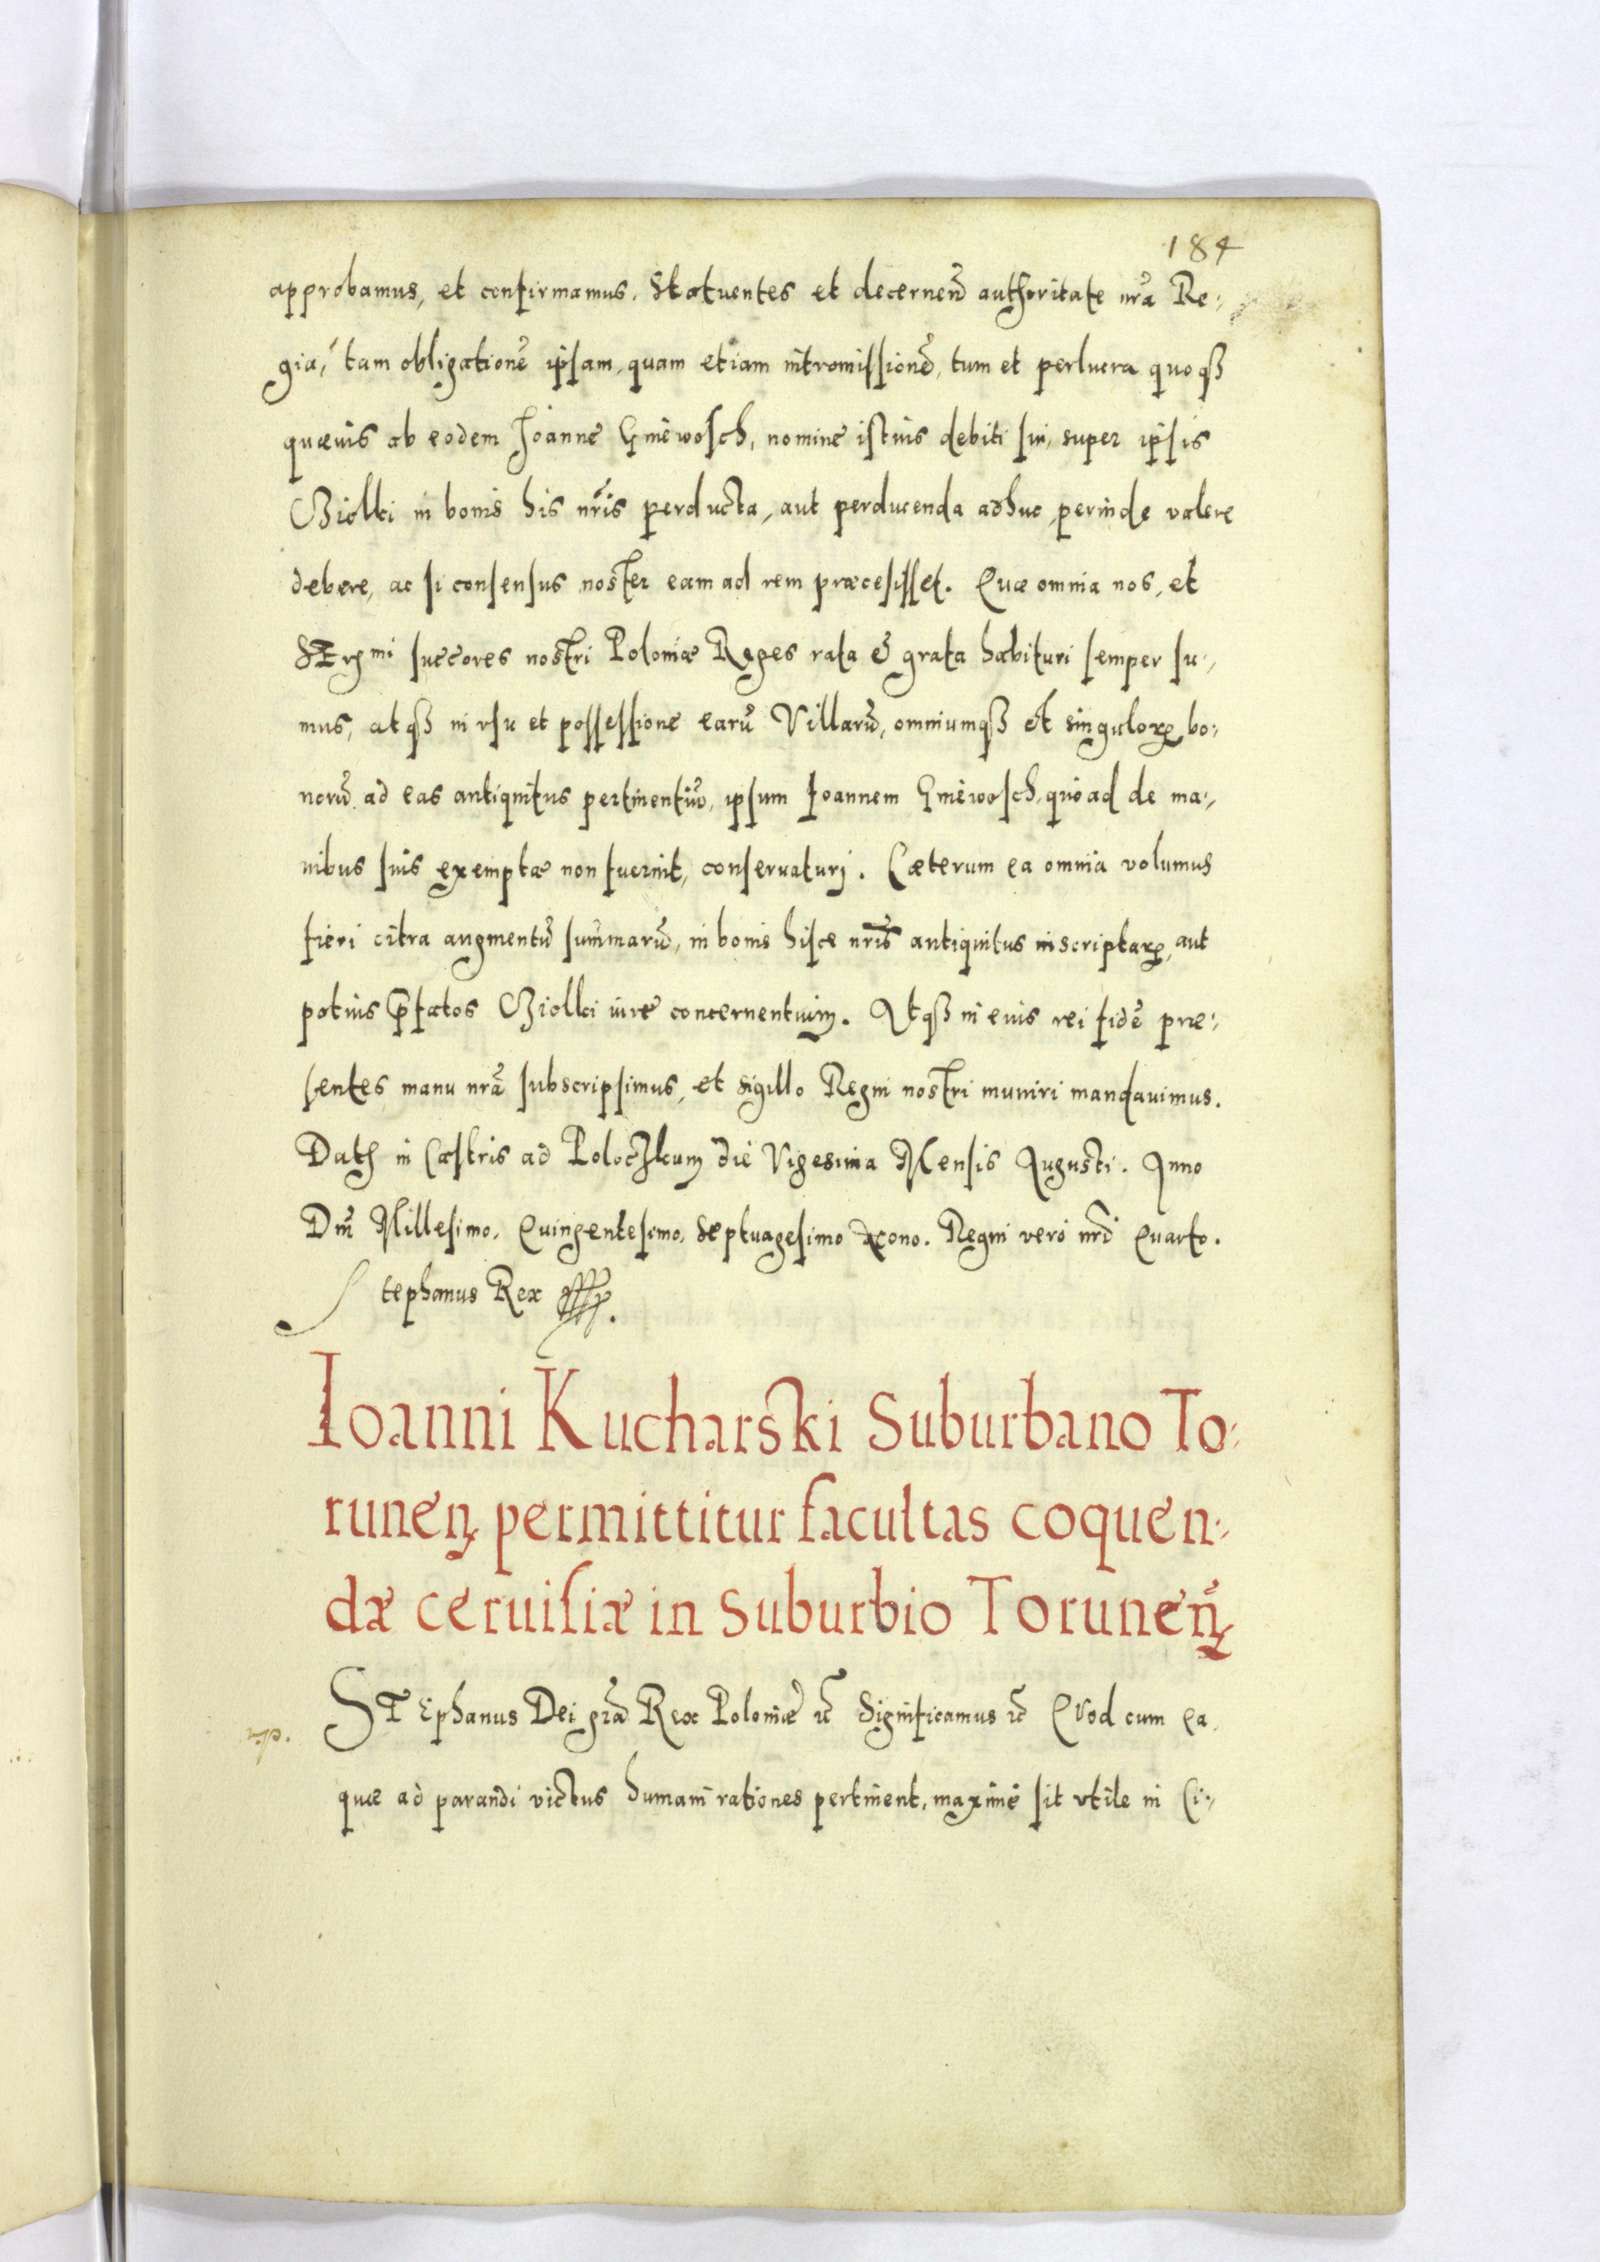 184
approbamus, et confirmamus. Statuentes et decernen̄ authoritate nr̃a Re-
gia, tam obligationē ipsam, quam etiam intromissionē, tum et perlucra quoqꝫ
quævis ab eodem Joanne Gniewosch, nomine istius debiti sui, super ipsis
Biolki in bonis his nr̃is perducta, aut perducenda adhuc, perinde valere
debere, ac si consensus noster eam ad rem præcesisset. Quæ omnia nos, et
Serᵐⁱ succores nostri Poloniæ Reges rata & grata habituri semper su-
mus, atqꝫ in vsu et possessione earū Villarū, omniumqꝫ et singuloꝝ bo-
norū ad eas antiquitus pertinentiū, ipsum Joannem Gniewosch, quoad de ma-
nibus suis exemptæ non fuerint, conseruaturj. Cæterum ea omnia volumus
fieri citra augmentū sum̄marū, in bonis hisce nr̃is antiquitus inscriptaꝝ, aut
potius p̄fatos Biolki iure concernentium. Atqꝫ in eius rei fidē præ-
sentes manu nr̃a subscripsimus, et sigillo Regni nostri muniri mandauimus.
Datꝭ in Castris ad Poloczkum die Vigesima Mensis Augusti. Anno
Dnĩ Millesimo. Quingentesimo, Septuagesimo Nono. Regni vero nrĩ Quarto.
Stephanus Rex
Ioanni Kucharski Suburbano To-
runen̄ permittitur facultas coquen-
dæ ceruisiæ in Suburbio Torunen̄
STEphanus Dei gr̃a Rex Poloniæ ꝛc Significamus ꝛc QVod cum ea
quæ ad parandi victus humani rationes pertinent, maxime sit vtile in Ci-